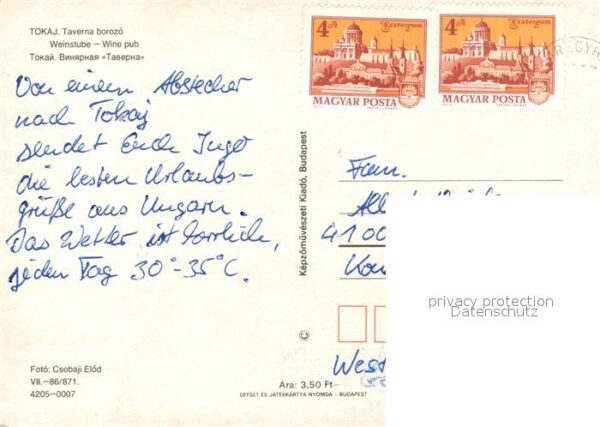 TOKAJ. Taverna borozó
Weinstube — Wine pub
Токай. Винярная «Таверна»
Von einem Abstecher
nach Tokaj
sendet Euch Ingo
die besten Urlaubs-
grüße aus Ungarn.
Das Wetter ist herrlich,
jeden Tag 30°-35°C.
Fotó: Csobaji Előd
VII.—86/871.
4205—0007
Ára: 3,50 Ft
OFFSET ÉS JÁTÉKKÁRTYA NYOMDA - BUDAPEST
© Képzőművészeti Kiadó, Budapest
4 Ft Esztergom
MAGYAR POSTA
4 Ft Esztergom
MAGYAR POSTA
Fam.
4100
West
privacy protection
Datenschutz